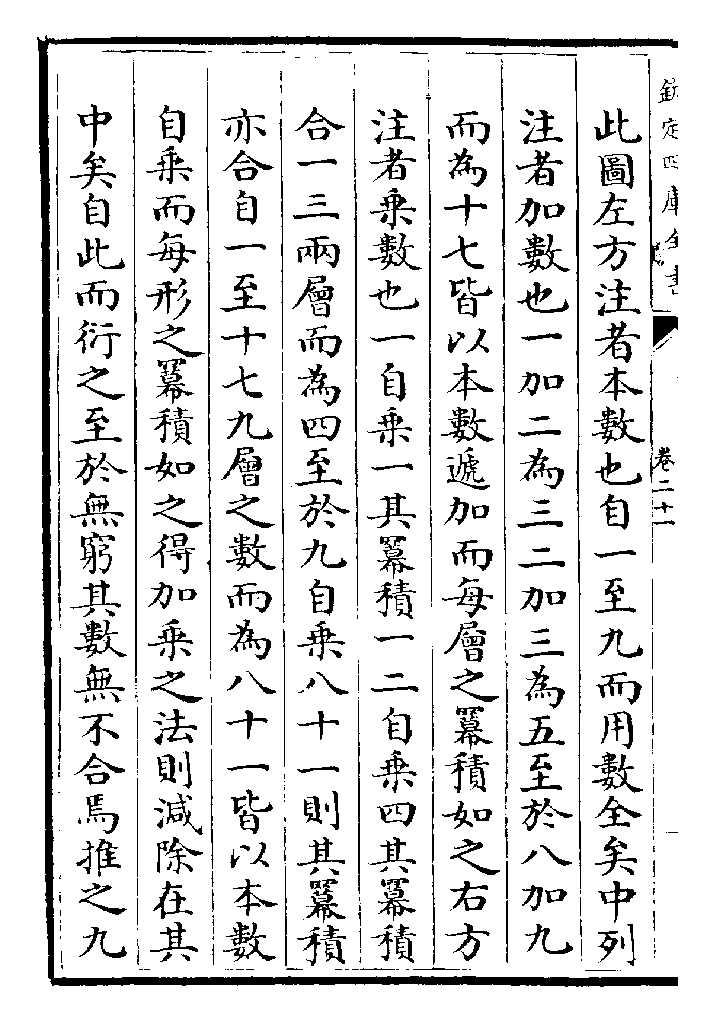 欽定四庫全書
卷二十一
此圖左方注者本數也自一至九而用數全矣中列
注者加數也一加二為三二加三為五至於八加九
而為十七皆以本數遞加而每層之冪積如之右方
注者乘數也一自乘一其冪積一二自乘四其冪積
合一三兩層而為四至於九自乘八十一則其冪積
亦合自一至十七九層之數而為八十一皆以本數
自乘而每形之冪積如之得加乘之法則減除在其
中矣自此而衍之至於無窮其數無不合焉推之九